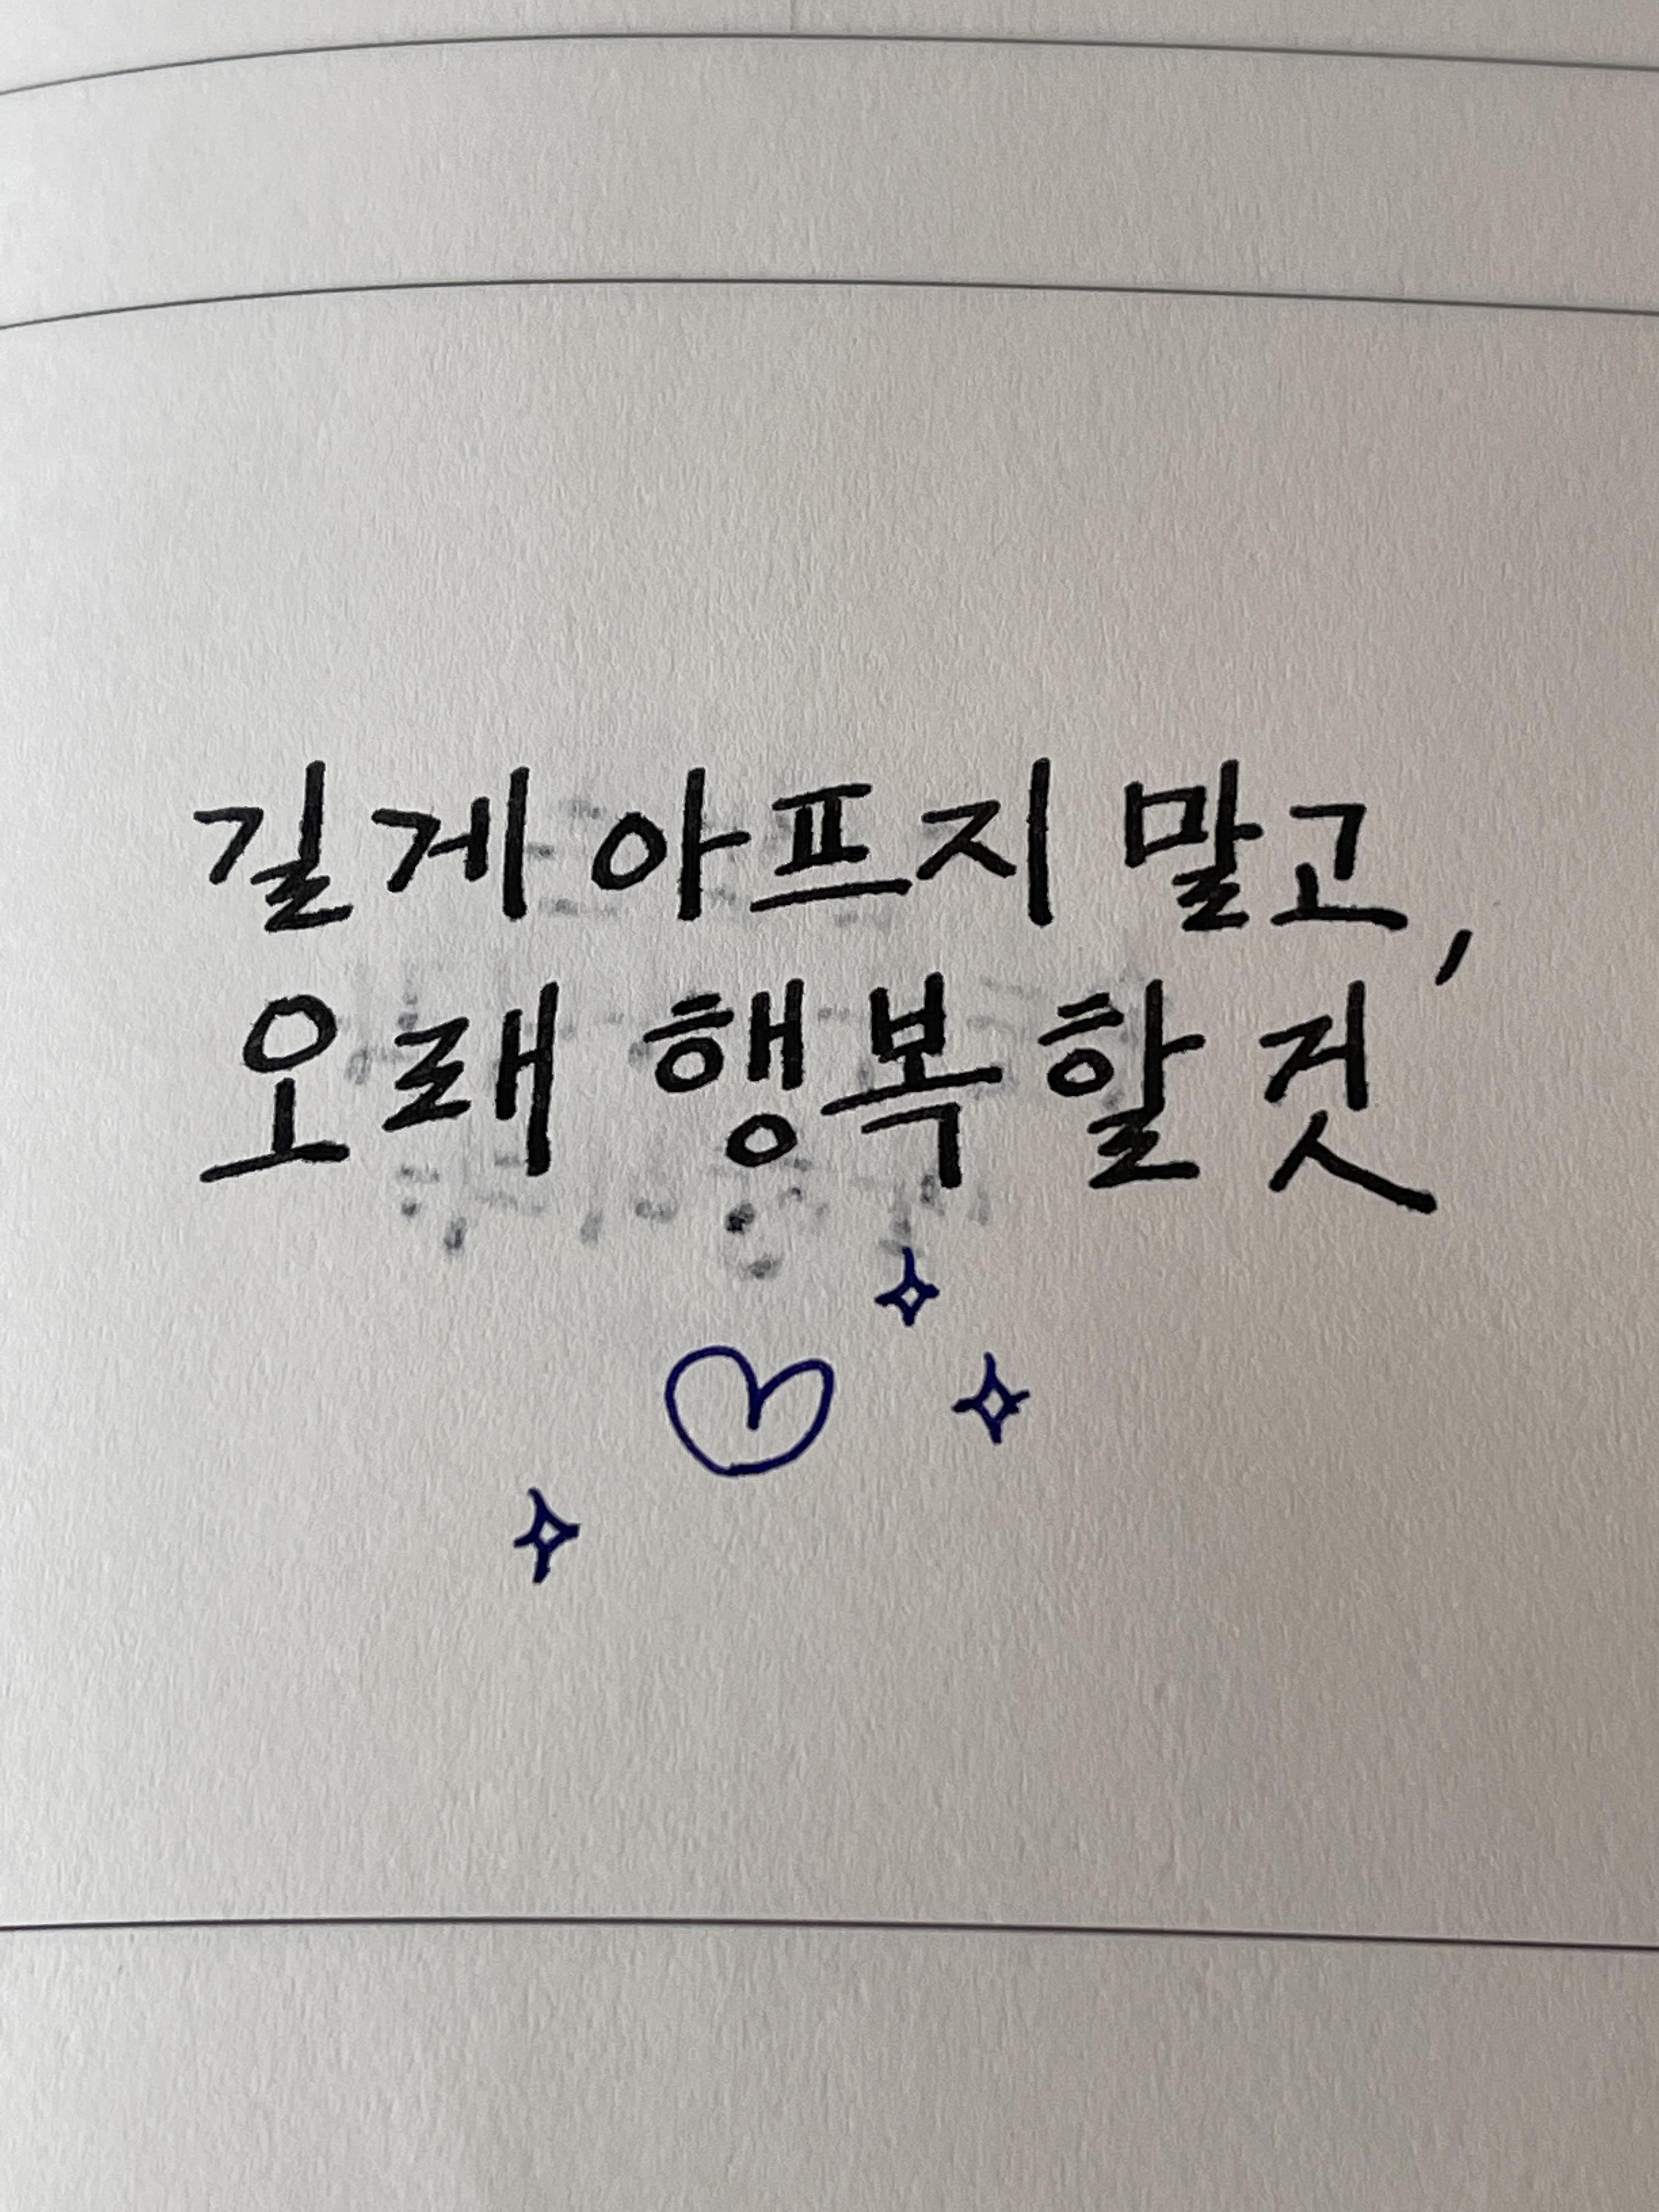 길게 아프지 말고,
오래 행복할 것